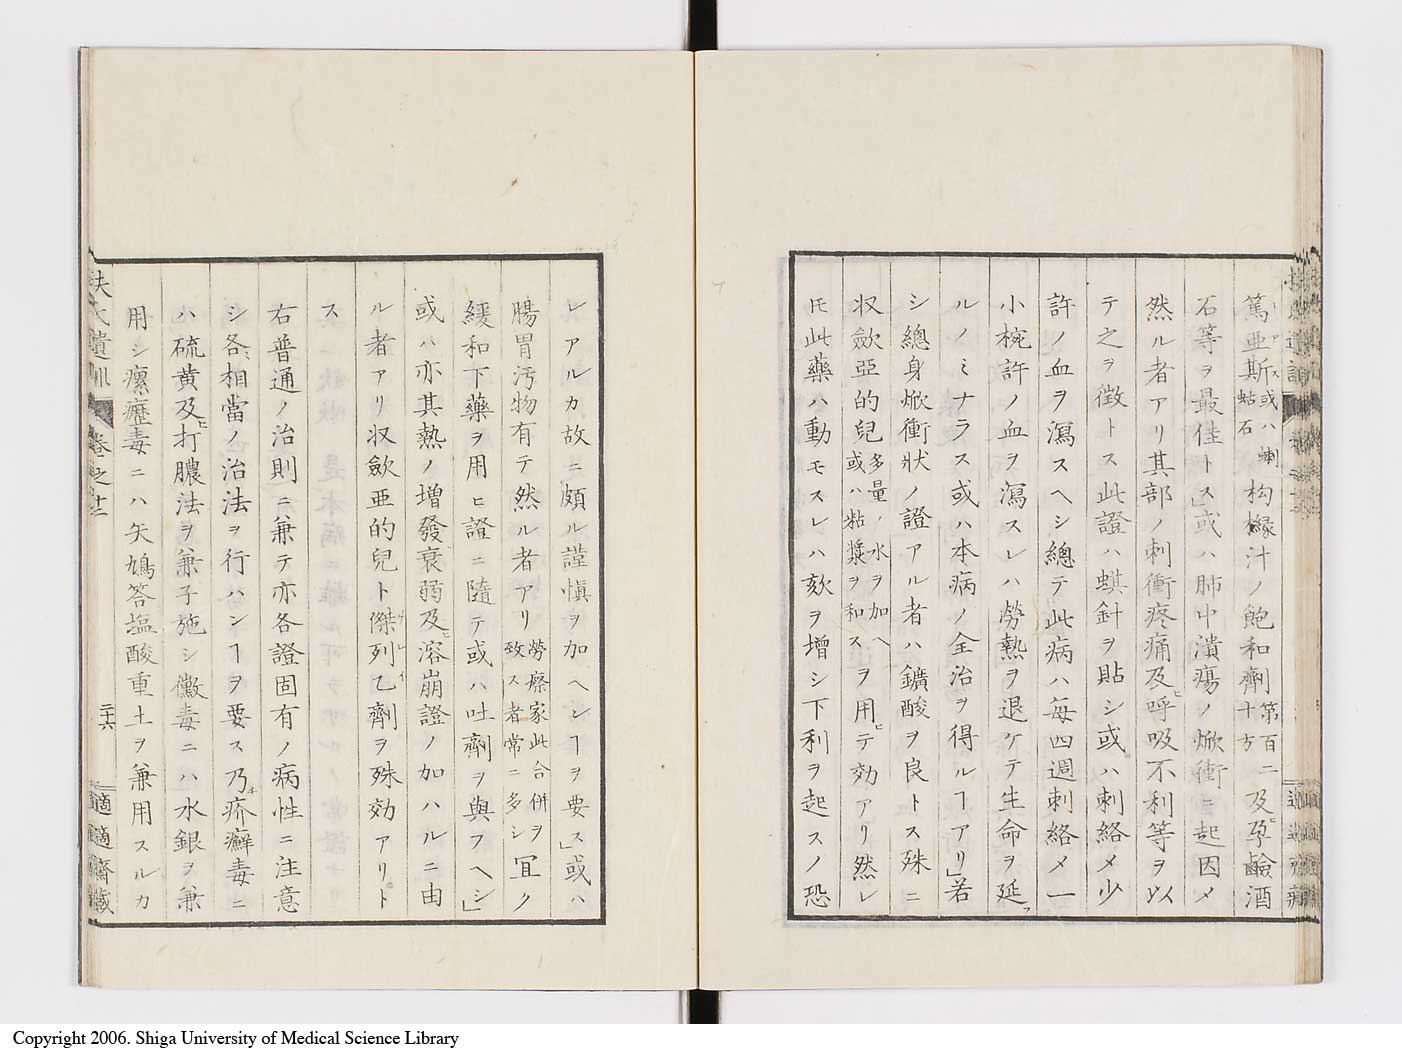 篤亜斯或ハ蝲蛄石枸櫞汁ノ飽和劑第百二十方及ヒ孕鹼酒
石等ヲ最佳トス」或ハ肺中潰瘍ノ焮衝ニ起因メ
然ル者アリ其部ノ刺衝疼痛及ヒ呼吸不利等ヲ以
テ之ヲ徴トス此證ハ蜞針ヲ貼シ或ハ刺絡メ少
許ノ血ヲ瀉スヘシ總テ此病ハ毎四週刺絡メ一
小椀許ノ血ヲ瀉スレハ勞熱ヲ退ケテ生命ヲ延フ
ルノミナラス或ハ本病ノ全治ヲ得ルヿアリ」若
シ總身焮衝狀ノ證アル者ハ鑛酸ヲ良トス殊ニ
収歛亜的兒多量ノ水ヲ加ヘ或ハ粘漿ヲ和スヲ用ヒテ効アリ然レ
𪜈此藥ハ動モスレハ欬ヲ增シ下利ヲ起スノ恐
レアルカ故ニ頗ル謹愼ヲ加ヘンヿヲ要ス」或ハ
腸胃汚物有テ然ル者アリ勞瘵家此合併ヲ致ス者常ニ多シ冝ク
緩和下藥ヲ用ヒ證ニ隨テ或ハ吐劑ヲ與フヘシ」
或ハ亦其熱ノ增發衰弱及ヒ溶崩證ノ加ハルニ由
ル者アリ収歛亜的兒ト傑列乙劑ヲ殊効アリト
ス
右普通ノ治則ニ兼テ亦各證固有ノ病性ニ注意
シ各相當ノ治法ヲ行ハンヿヲ要ス乃チ疥癬毒ニ
ハ硫黄及ヒ打膿法ヲ兼子施シ黴毒ニハ水銀ヲ兼
用シ瘰癧毒ニハ矢鳩答塩酸重土ヲ兼用スルカ
扶氏遺訓 巻之十二 二十六 適適齋藏